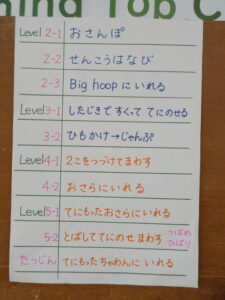 Top C
Level 2-1 おさんぽ
2-2 せんこうはなび
2-3 Big hoop に いれる
Level 3-1 したじきで すくって てにのせる
3-2 ひもかけ→じゃんぷ
Level 4-1 2こをつづけて まわす
4-2 おさらに いれる
Level 5-1 てにもったおさらに いれる
5-2 とばして てにのせ まわす つばめ ひばり
たつじん てにもったちゃわんに いれる